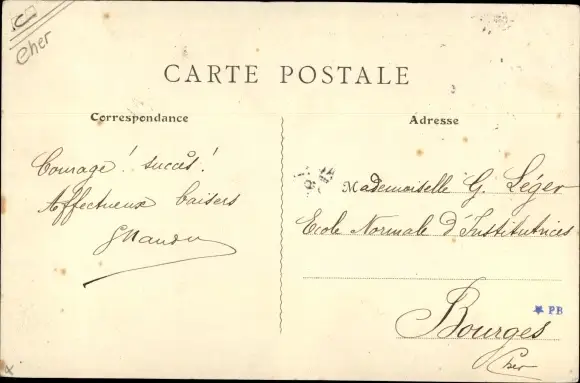 Cher
CARTE POSTALE
Correspondance
Adresse
Courage! succès!
Affectueux baisers
Mademoiselle G. Léger
Ecole Normale d'Institutrices
Bourges
Cher
PB